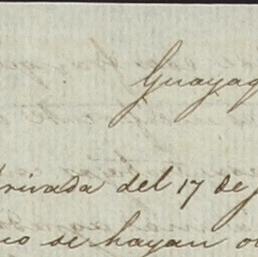 Guayaq
privada del 17 de J
no se hayan o